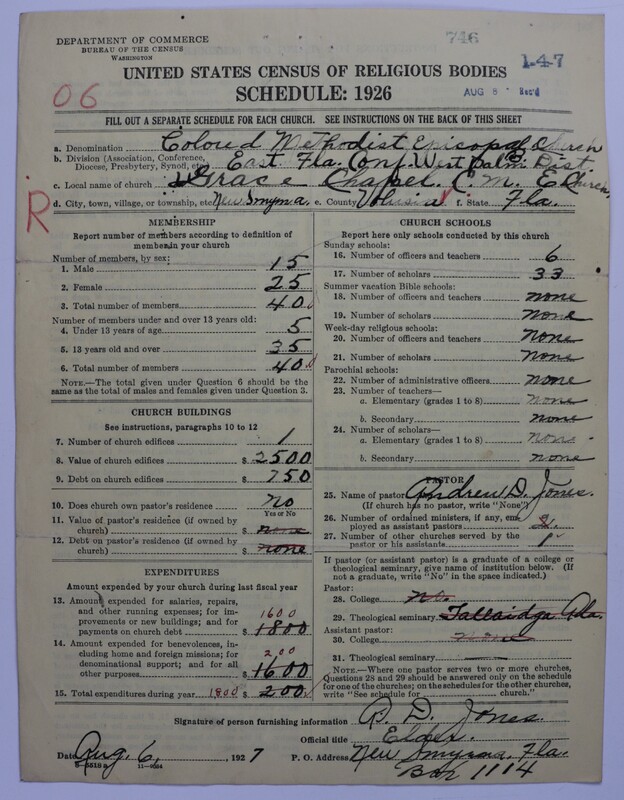 DEPARTMENT OF COMMERCE
BUREAU OF THE CENSUS
WASHINGTON
746
147
06
AUG 8 Rec'd
UNITED STATES CENSUS OF RELIGIOUS BODIES
SCHEDULE: 1926
FILL OUT A SEPARATE SCHEDULE FOR EACH CHURCH. SEE INSTRUCTIONS ON THE BACK OF THIS SHEET
a. Denomination Colored Methodist Episcopal Church
b. Division (Association, Conference, Diocese, Presbytery, Synod, etc.) East Fla. Conf. West Palm Dist.
c. Local name of church Grace Chapel C. M. E. Church,
d. City, town, village, or township, etc. New Smyrna e. County Volusia f. State Fla.
R
MEMBERSHIP
Report number of members according to definition of
member in your church
Number of members, by sex:
1. Male 15
2. Female 25
3. Total number of members 40
Number of members under and over 13 years old:
4. Under 13 years of age 5
5. 13 years old and over 35
6. Total number of members 40
NOTE.—The total given under Question 6 should be the
same as the total of males and females given under Question 3.
CHURCH BUILDINGS
See instructions, paragraphs 10 to 12
7. Number of church edifices 1
8. Value of church edifices $ 2500
9. Debt on church edifices $ 750
10. Does church own pastor's residence No
Yes or No
11. Value of pastor's residence (if owned by
church) $ none
12. Debt on pastor's residence (if owned by
church) $ none
EXPENDITURES
Amount expended by your church during last fiscal year
13. Amount expended for salaries, repairs,
and other running expenses; for im-
provements or new buildings; and for
payments on church debt $ 1600 1800
14. Amount expended for benevolences, in-
cluding home and foreign missions; for
denominational support; and for all
other purposes $ 200 1600
15. Total expenditures during year 1800 $ 200
CHURCH SCHOOLS
Report here only schools conducted by this church
Sunday schools:
16. Number of officers and teachers 6
17. Number of scholars 33
Summer vacation Bible schools:
18. Number of officers and teachers none
19. Number of scholars none
Week-day religious schools:
20. Number of officers and teachers none
21. Number of scholars none
Parochial schools:
22. Number of administrative officers none
23. Number of teachers—
a. Elementary (grades 1 to 8) none
b. Secondary none
24. Number of scholars—
a. Elementary (grades 1 to 8) none
b. Secondary none
PASTOR
25. Name of pastor Andrew D. Jones.
(If church has no pastor, write "None")
26. Number of ordained ministers, if any, em-
ployed as assistant pastors
27. Number of other churches served by the
pastor or his assistants 1
If pastor (or assistant pastor) is a graduate of a college or
theological seminary, give name of institution below. (If
not a graduate, write "No" in the space indicated.)
Pastor:
28. College No.
29. Theological seminary Talladega Ala.
Assistant pastor:
30. College none
31. Theological seminary
NOTE.—Where one pastor serves two or more churches,
Questions 28 and 29 should be answered only on the schedule
for one of the churches; on the schedules for the other churches,
write "See schedule for church."
Signature of person furnishing information A. D. Jones.
Official title Elder.
Date Aug. 6, 1927 P. O. Address New Smyrna, Fla.
Box 1114